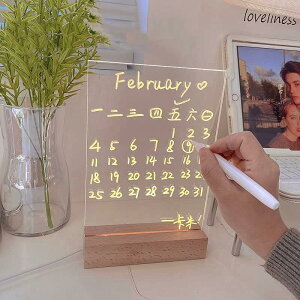 loveliness
February ♡
一 二 三 四 五 六 日
1 2 3
4 5 6 7 8 9
11 12 13 14 15 16 17
18 19 20 21 22 23 24
25 26 27 28 29 30 31
一卡米!